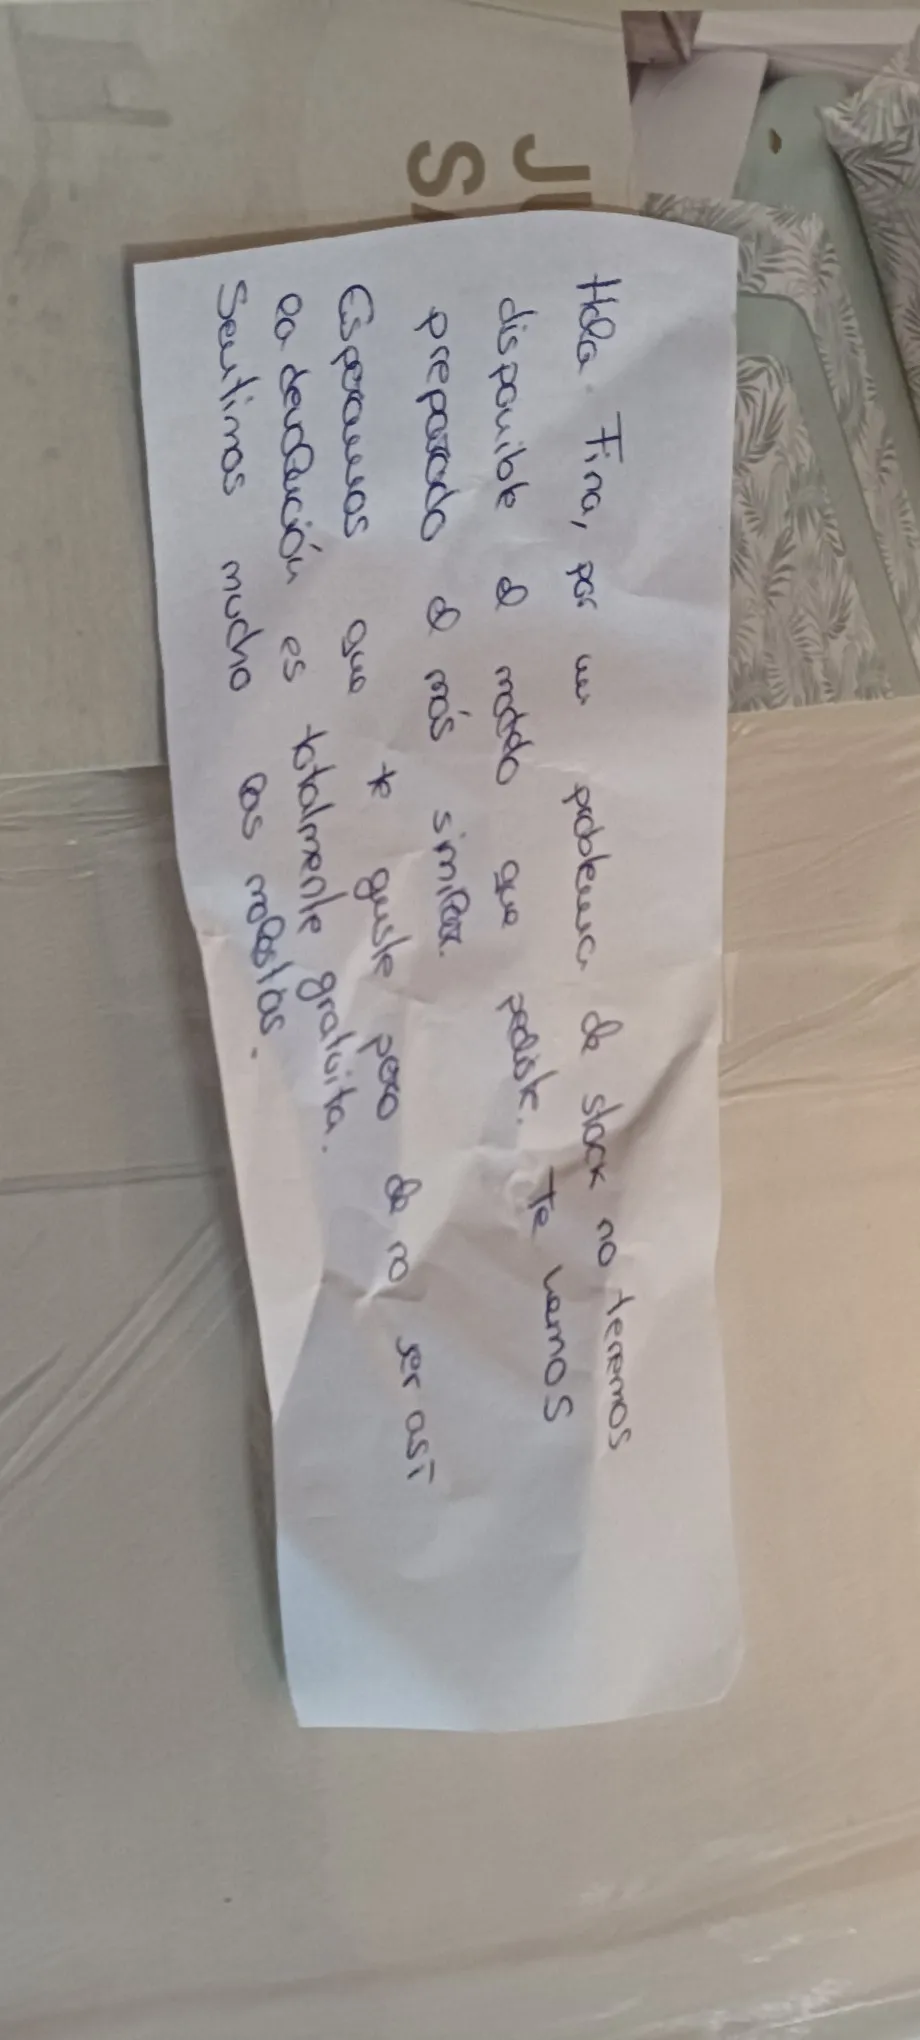 JU
SA
Hola Fina, por un problema de stock no tenemos
disponible el modelo que pediste. Te hemos
preparado el más similar.
Esperamos que te guste pero de no ser así
la devolución es totalmente gratuita.
Sentimos mucho las molestias.